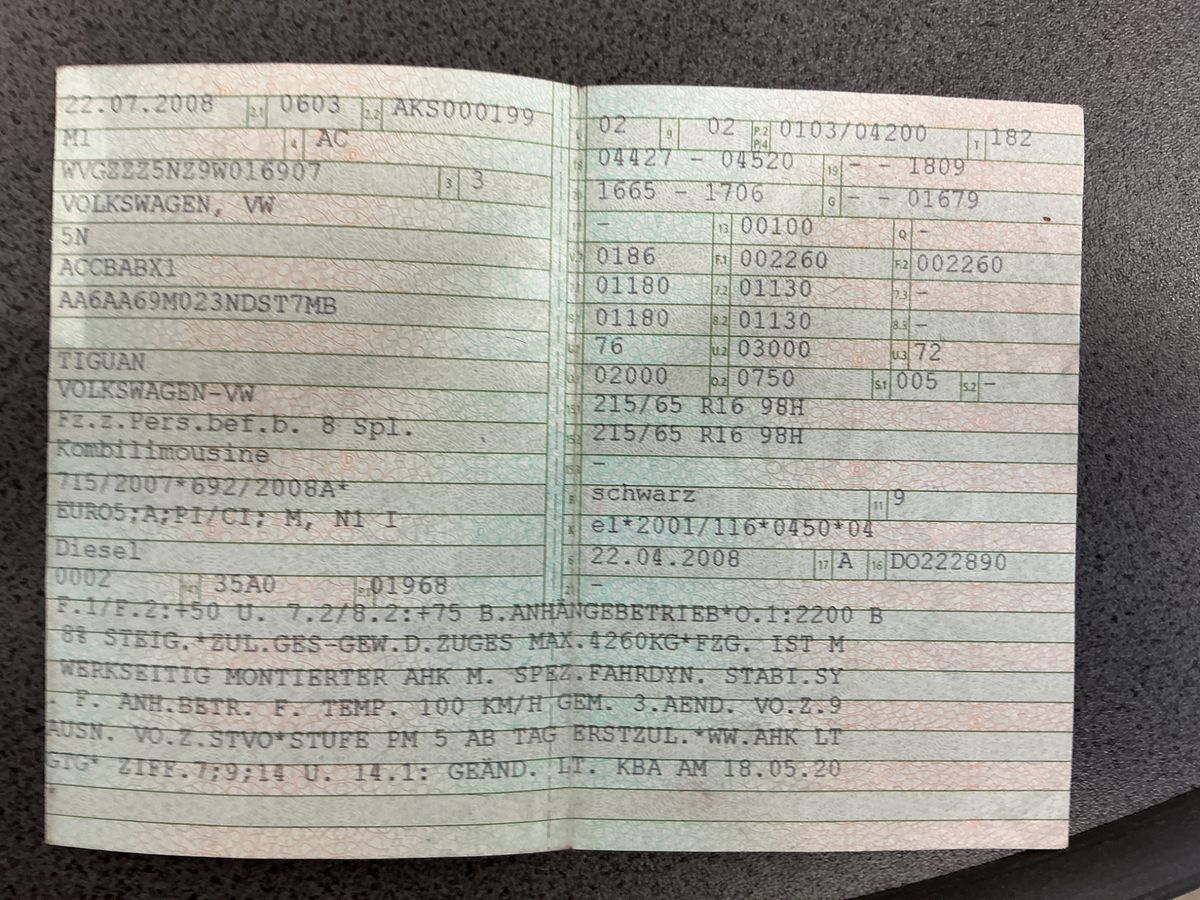 22.07.2008 2.1 0603 2.2 AKS000199
M1 4 AC
WVGZZZ5NZ9W016907 3 3
VOLKSWAGEN, VW
5N
ACCBABX1
AA6AA69M023NDST7MB
TIGUAN
VOLKSWAGEN-VW
Fz.z.Pers.bef.b. 8 Spl.
Kombilimousine
715/2007*692/2008A*
EURO5;A;PI/CI; M, N1 I
Diesel
0002 35A0 P.1 01968
02 9 02 P.2 P.4 0103/04200 T 182
04427 - 04520 19 - - 1809
1665 - 1706 G - - 01679
- 13 00100 Q -
0186 F.1 002260 F.2 002260
01180 7.2 01130 7.3 -
01180 8.2 01130 8.3 -
76 U.2 03000 U.3 72
02000 O.2 0750 S.1 005 S.2 -
215/65 R16 98H
215/65 R16 98H
-
schwarz 11 9
e1*2001/116*0450*04
22.04.2008 17 A 16 DO222890
-
F.1/F.2:+50 U. 7.2/8.2:+75 B.ANHÄNGEBETRIEB*O.1:2200 B
8% STEIG.*ZUL.GES-GEW.D.ZUGES MAX.4260KG*FZG. IST M
WERKSEITIG MONTIERTER AHK M. SPEZ.FAHRDYN. STABI.SY
. F. ANH.BETR. F. TEMP. 100 KM/H GEM. 3.AEND. VO.Z.9
AUSN. VO.Z.STVO*STUFE PM 5 AB TAG ERSTZUL.*WW.AHK LT
GTG* ZIFF.7;9;14 U. 14.1: GEÄND. LT. KBA AM 18.05.20
*